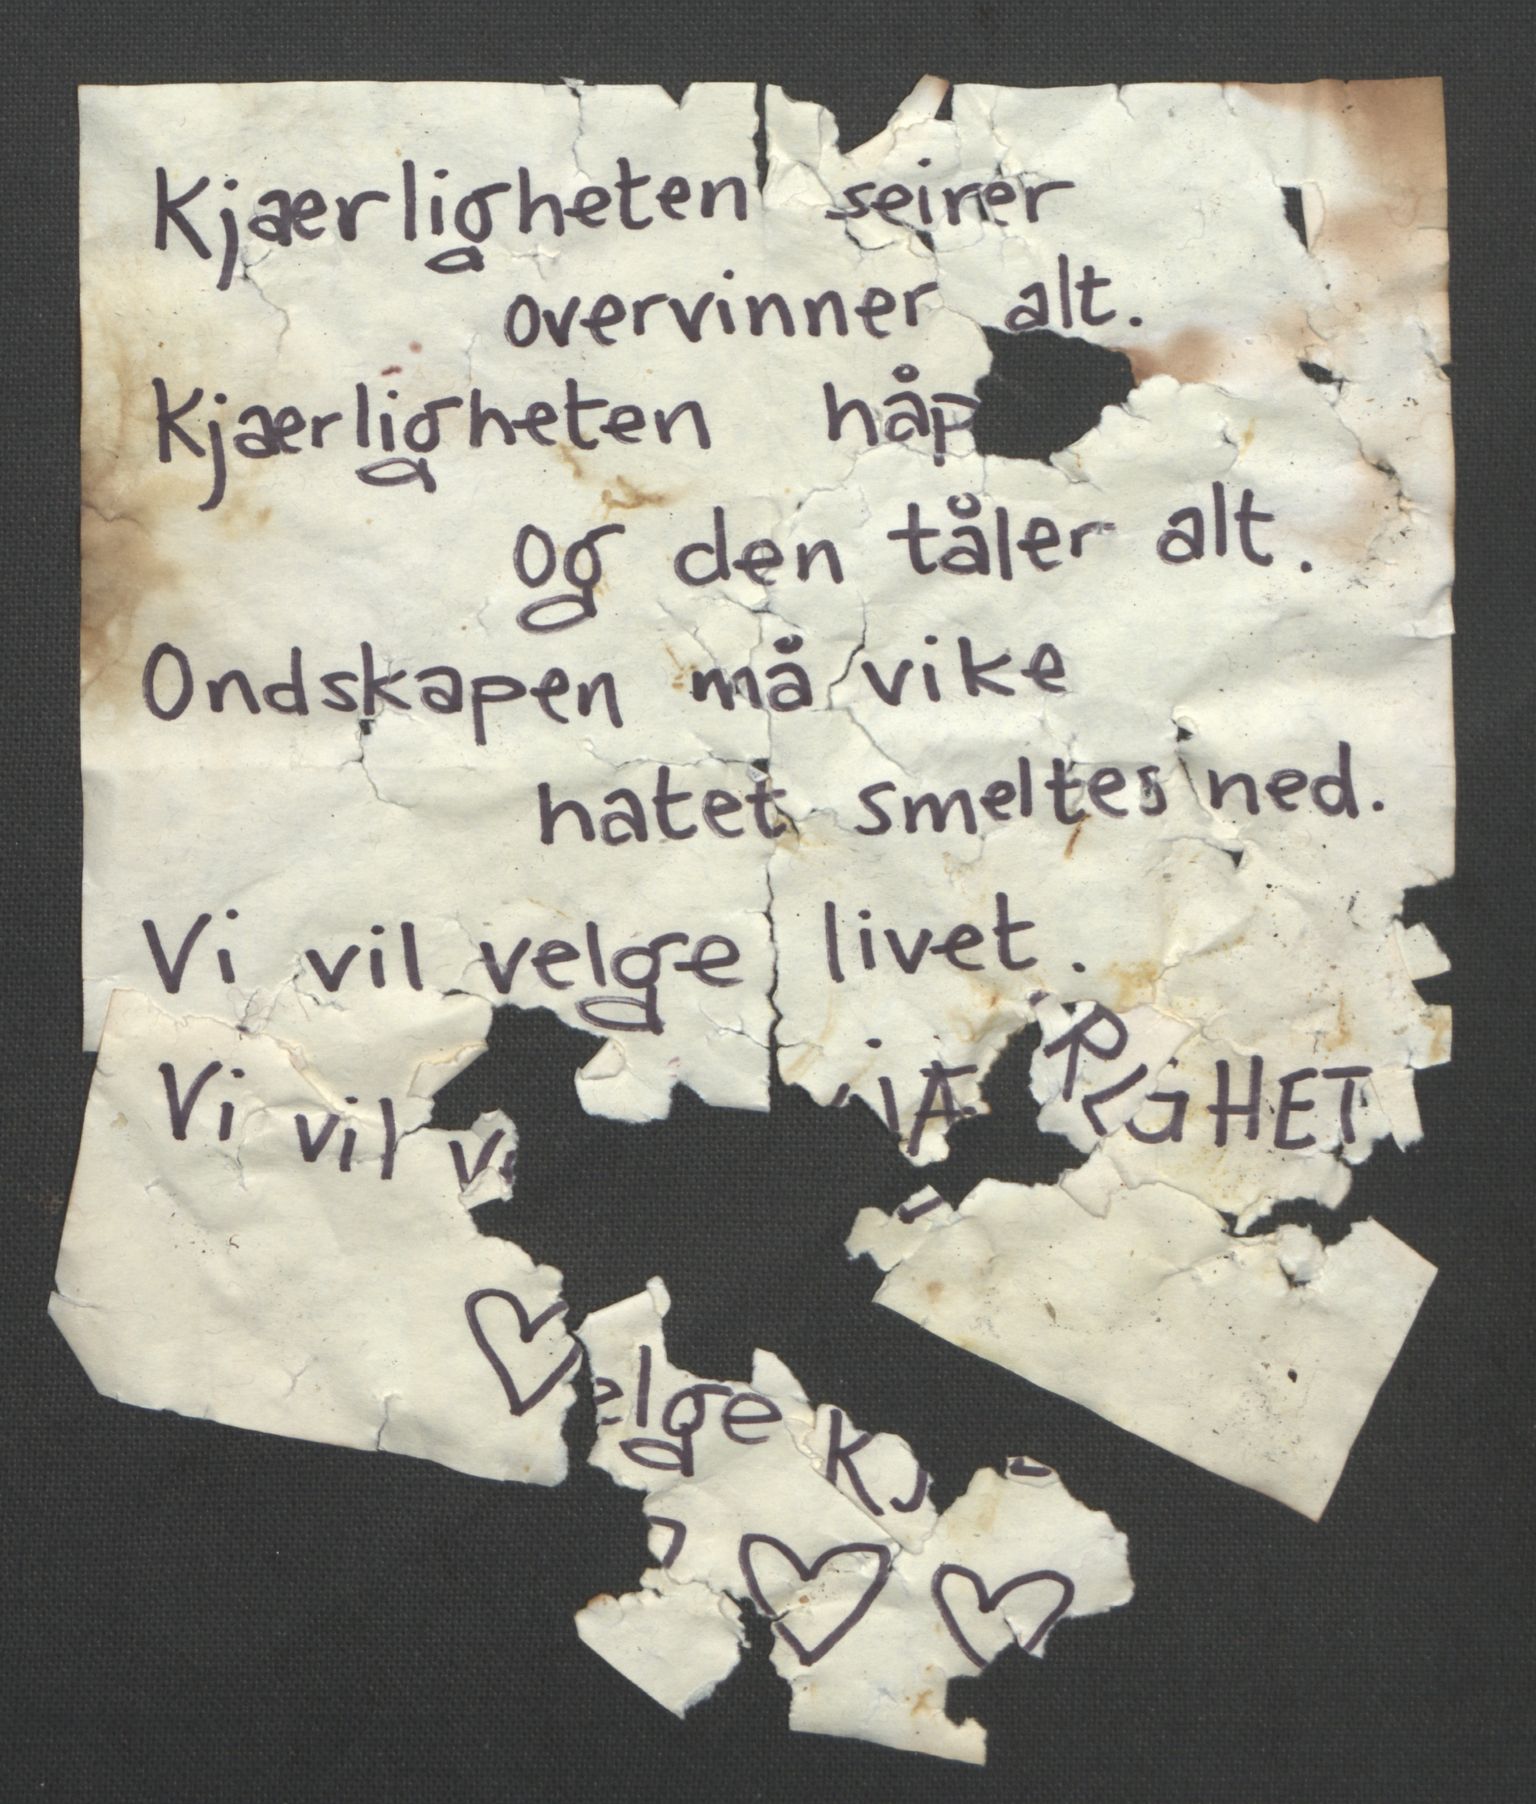 Kjærligheten seirer
overvinner alt.
Kjærligheten håp
og den tåler alt.
Ondskapen må vike
hatet smeltes ned.
Vi vil velge livet.
Vi vil velge KJÆRLIGHET